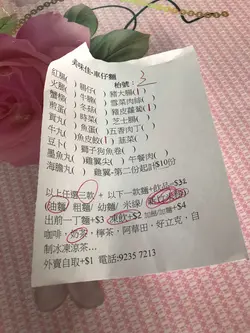 美味佳 車仔麵
枱號: 3
紅腸( ) 腸仔( ) 豬大腸(1)
火腩( ) 牛腩( ) 雪菜肉絲( )
蟹柳( ) 冬菇( ) 豬皮蘿蔔(1)
煎蛋( ) 時菜( ) 芝士腸( )
貢丸( ) 魚蛋( ) 五香肉丁( )
牛丸( ) 魚皮餃(1) 韮菜( )
豆卜( ) 獅子狗魚卷( )
墨魚丸( ) 雞翼尖( ) 午餐肉( )
海膽丸( ) 雞翼-第二份起計$10份
以上任選三款 + 以下一款麵+飲品=$32
油麵 粗麵/ 幼麵/ 米線/
出前一丁麵+$3 凍飲+$2 +$4
咖啡,奶茶, 檸茶, 阿華田, 好立克, 自
制冰凍涼茶...
外賣自取+$1 電話:9235 7213